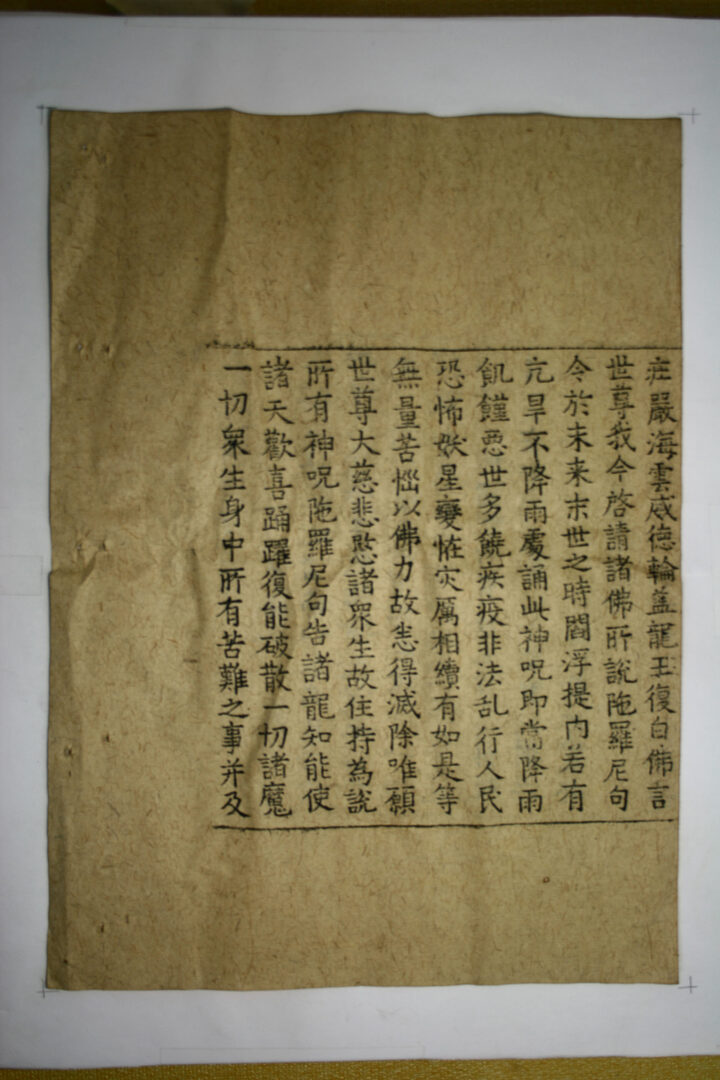 庄嚴海雲威德輪盖龍王復白佛言
世尊我今啓請諸佛所說陁羅尼句
令於未来末世之時閻浮提内若有
亢旱不降雨處誦此神呪即當降雨
飢饉惡世多饒疾疫非法乱行人民
恐怖妖星變恠灾厲相續有如是等
無量苦惱以佛力故悉得滅除唯願
世尊大慈悲愍諸衆生故住持為說
所有神呪陁羅尼句告諸龍知能使
諸天歡喜踊躍復能破散一切諸魔
一切衆生身中所有苦難之事并及